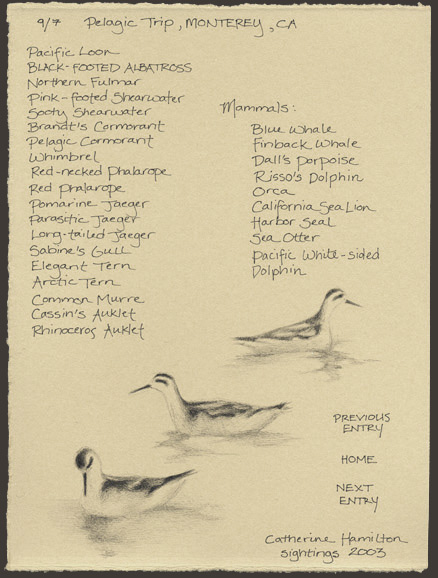 9/7 Pelagic Trip, MONTEREY, CA
Pacific Loon
BLACK-FOOTED ALBATROSS
Northern Fulmar
Pink-footed Shearwater
Sooty Shearwater
Brandt's Cormorant
Pelagic Cormorant
Whimbrel
Red-necked Phalarope
Red phalarope
Pomarine Jaeger
Parasitic Jaeger
Long-tailed Jaeger
Sabine's Gull
Elegant Tern
Arctic Tern
Common Murre
Cassin's Auklet
Rhinoceros Auklet
Mammals:
Blue Whale
Finback Whale
Dall's porpoise
Risso's Dolphin
Orca
California Sea Lion
Harbor Seal
Sea Otter
Pacific White-sided
Dolphin
PREVIOUS
ENTRY
HOME
NEXT
ENTRY
Catherine Hamilton
sightings 2003